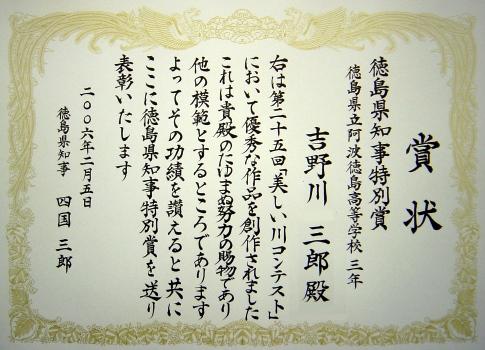 賞状
徳島県知事特別賞
徳島県立阿波徳島高等学校 三年
吉野川 三郎 殿
右は第二十五回「美しい川コンテスト」
において優秀な作品を創作されました
これは貴殿のたゆまぬ努力の賜物であり
他の模範とするところであります
よってその功績を讃えると共に
ここに徳島県知事特別賞を送り
表彰いたします
二〇〇六年二月五日
徳島県知事 四国 三郎